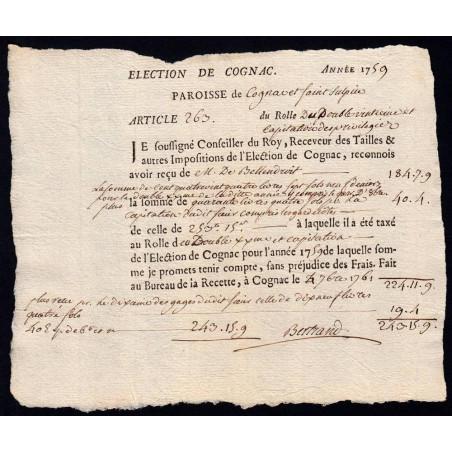 ELECTION DE COGNAC. ANNÉE 1759
PAROISSE de Cognac et Saint Sulpice
ARTICLE 263. du Rolle Du Double vintieme et
Capitation des privilegiez
JE soussigné Conseiller du Roy, Receveur des Tailles &
autres Impositions de l'Election de Cognac, reconnois
avoir reçu de M. De Bellendroit 184.7.9
La somme de Cent quatre vint quatre livres sept sols neuf deniers
pour le double xxme de la dite année y compris
plus la somme de quarante livres quatre sols p. La 40.4.
Capitation dudit Sair compris
de celle de 253#.15s. à laquelle il a été taxé
au Rolle de Double xxme et capitation
de l'Election de Cognac pour l'année 1759 de laquelle som-
me je promets tenir compte, sans préjudice des Frais. Fait
au Bureau de la Recette, à Cognac le 4 7bre 1761 224.11.9
plus retenu pr. le dixieme des gages dudit Sair celle de dix neuf livres
quatre sols 19.4
243.15.9 Bertrand 243.15.9